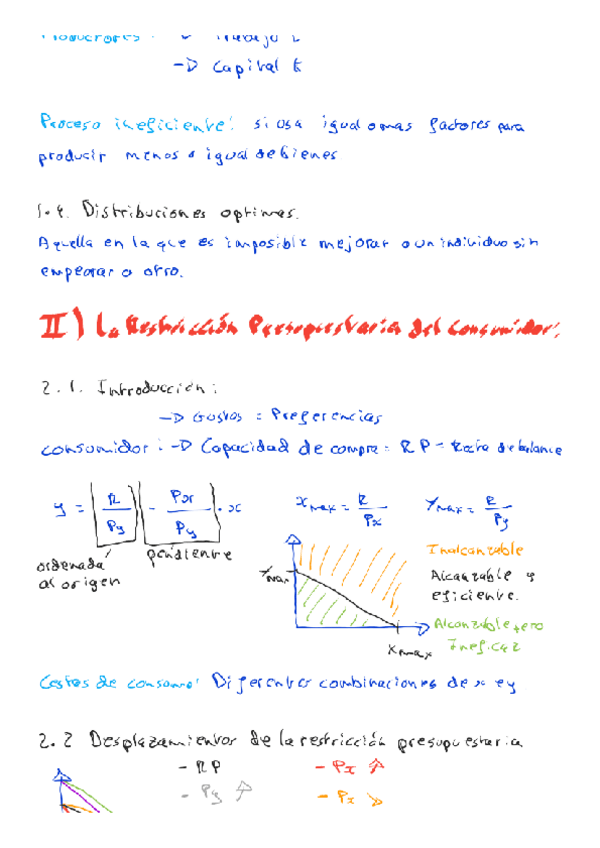 Productores: → Trabajo L
→ Capital K
Proceso ineficiente: si usa igual o mas factores para
producir menos o igual de bienes
1.4. Distribuciones optimas.
Aquella en la que es imposible mejorar a un individuo sin
empeorar a otro.
II) La Restricción Presupuestaria del Consumidor:
2.1. Introducción:
→ Gustos = Preferencias
consumidor: → Capacidad de compra = RP = Recta de balance
y = R/Py - Px/Py · x
ordenada al origen
pendiente
Xmax = R/Px
Ymax = R/Py
Ymax
Xmax
Inalcanzable
Alcanzable y
eficiente.
Alcanzable pero
Ineficaz
Cestas de consumo: Diferentes combinaciones de x e y
2.2 Desplazamientos de la restricción presupuestaria
- RP
- Px ↑
- Py ↑
- Px ↘